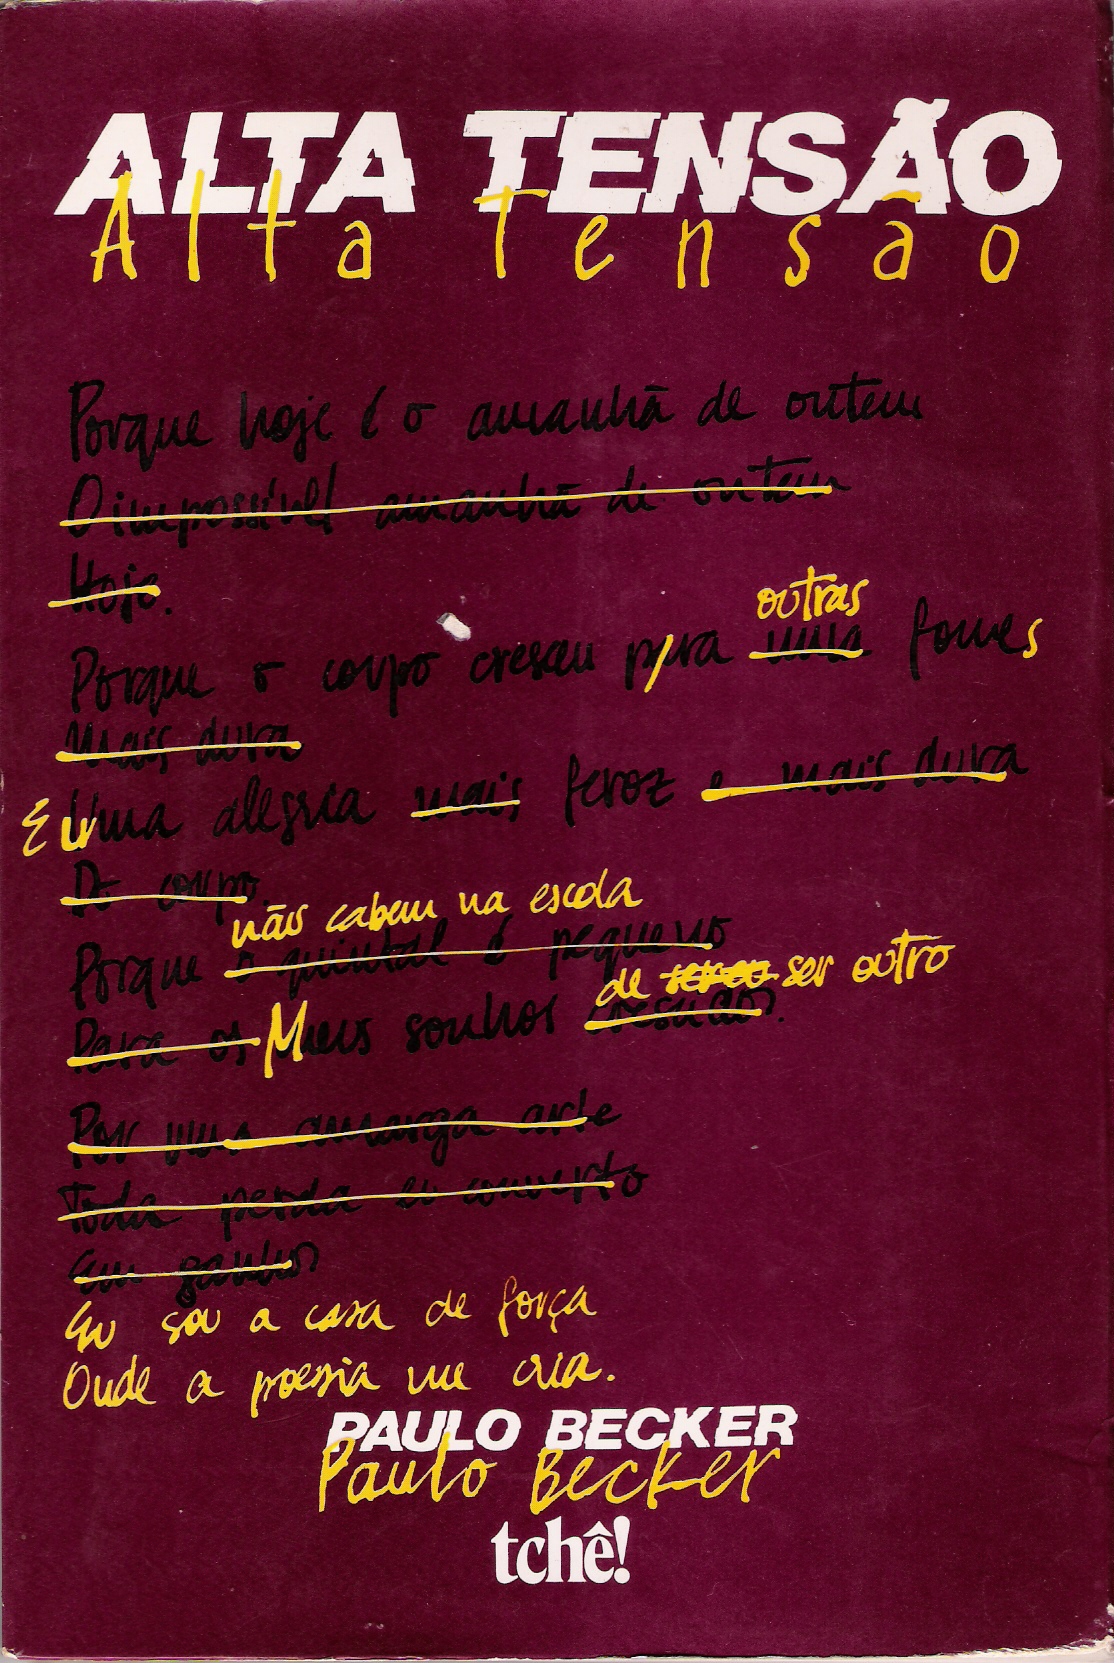 ALTA TENSÃO
Alta Tensão
Porque hoje é o amanhã de ontem
O impossível amanhã de ontem
Hoje.
outras
Porque o corpo cresceu para uma fomes
Mais dura
E uma alegria mais feroz e mais dura
Do corpo.
não cabem na escola
Porque o quintal é pequeno
de ser outro
Para os Meus sonhos crescidos.
Por meu amarga arte
Toda perda eu converto
Em ganhos
Eu sou a casa de força
Onde a poesia me cria.
PAULO BECKER
Paulo Becker
tchê!